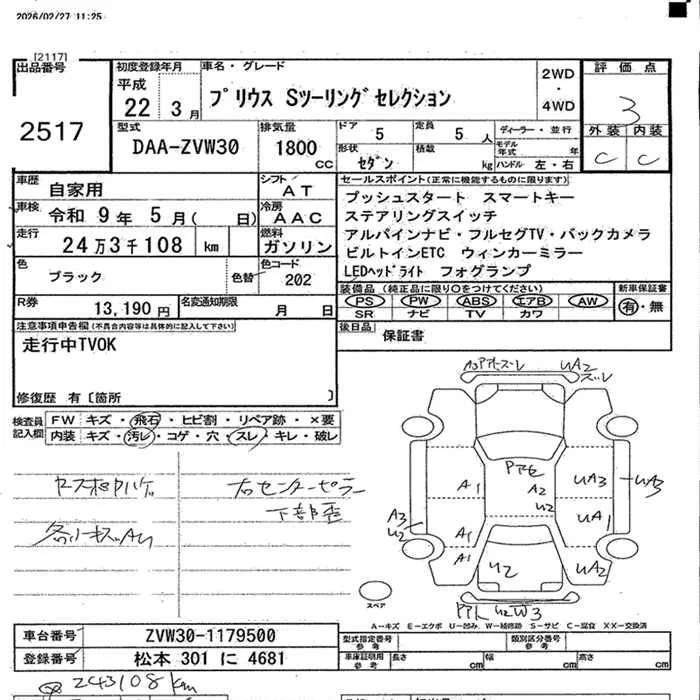 2026/02/27 11:25
[2117]
出品番号
2517
初度登録年月
平成
22 3月
車名・グレード
プリウス Sツーリングセレクション
2WD
・
4WD
評価点
3
外装 内装
C C
型式
DAA-ZVW30
排気量
1800 CC
ドア 5
定員 5 人
形状 セダン
積載 kg
ディーラー・並行
モデル年式 年
ハンドル 左・右
車歴 自家用
シフト AT
車検 令和 9年 5月( 日)
冷房 AAC
走行 24万3千108 km
燃料 ガソリン
色 ブラック 色替
色コード 202
R券 13,190円
名変通知期限 月 日
セールスポイント(正常に機能するものに限ります)
プッシュスタート スマートキー
ステアリングスイッチ
アルパインナビ・フルセグTV・バックカメラ
ビルトインETC ウィンカーミラー
LEDヘッドライト フォグランプ
装備品(純正品に限り○をつけてください)
PS PW ABS エアB AW
SR ナビ TV カワ
新車保証書
有・無
後日品 保証書
注意事項申告欄(不具合内容等は具体的に記入して下さい)
走行中TVOK
修復歴 有〔箇所 〕
検査員記入欄
FW キズ・飛石・ヒビ割・リペア跡・×要
内装 キズ・汚レ・コゲ・穴・スレ・キレ・破レ
右センターピラー
下部歪
各小キズAU
UA2
ズレ
A1
A2
U2
UA3
UA3
A3
U2
A1
UA1
A1
U2
UA2
U2W3
スペア
A-キズ E-エクボ U-凹み W-補修跡 S-サビ C-腐食 XX-交換済
車台番号 ZVW30-1179500
登録番号 松本 301 に 4681
型式指定番号参考
類別区分番号参考
車庫証明用参考 長さ cm 幅 cm 高さ cm
243108km